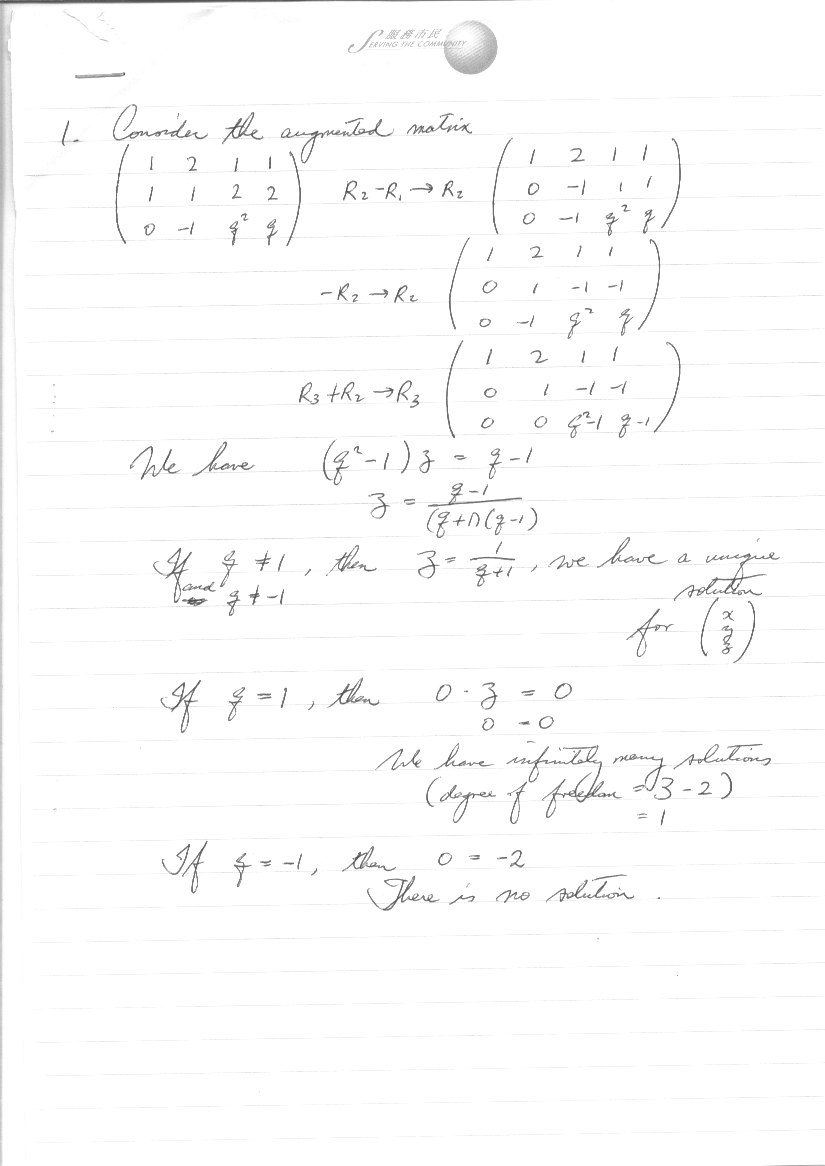 服務市民
SERVING THE COMMUNITY
1. Consider the augmented matrix
( 1 2 1 1
1 1 2 2
0 -1 q² q ) R₂ - R₁ → R₂ ( 1 2 1 1
0 -1 1 1
0 -1 q² q )
-R₂ → R₂ ( 1 2 1 1
0 1 -1 -1
0 -1 q² q )
R₃ + R₂ → R₃ ( 1 2 1 1
0 1 -1 -1
0 0 q²-1 q-1 )
We have (q² - 1) z = q - 1
z = (q - 1) / (q+1)(q-1)
If q ≠ 1, then z = 1/(q+1), we have a unique
and q ≠ -1 solution
for ( x
y
z )
If q = 1, then 0 · z = 0
0 = 0
We have infinitely many solutions
(degree of freedom = 3 - 2)
= 1
If q = -1, then 0 = -2
There is no solution.